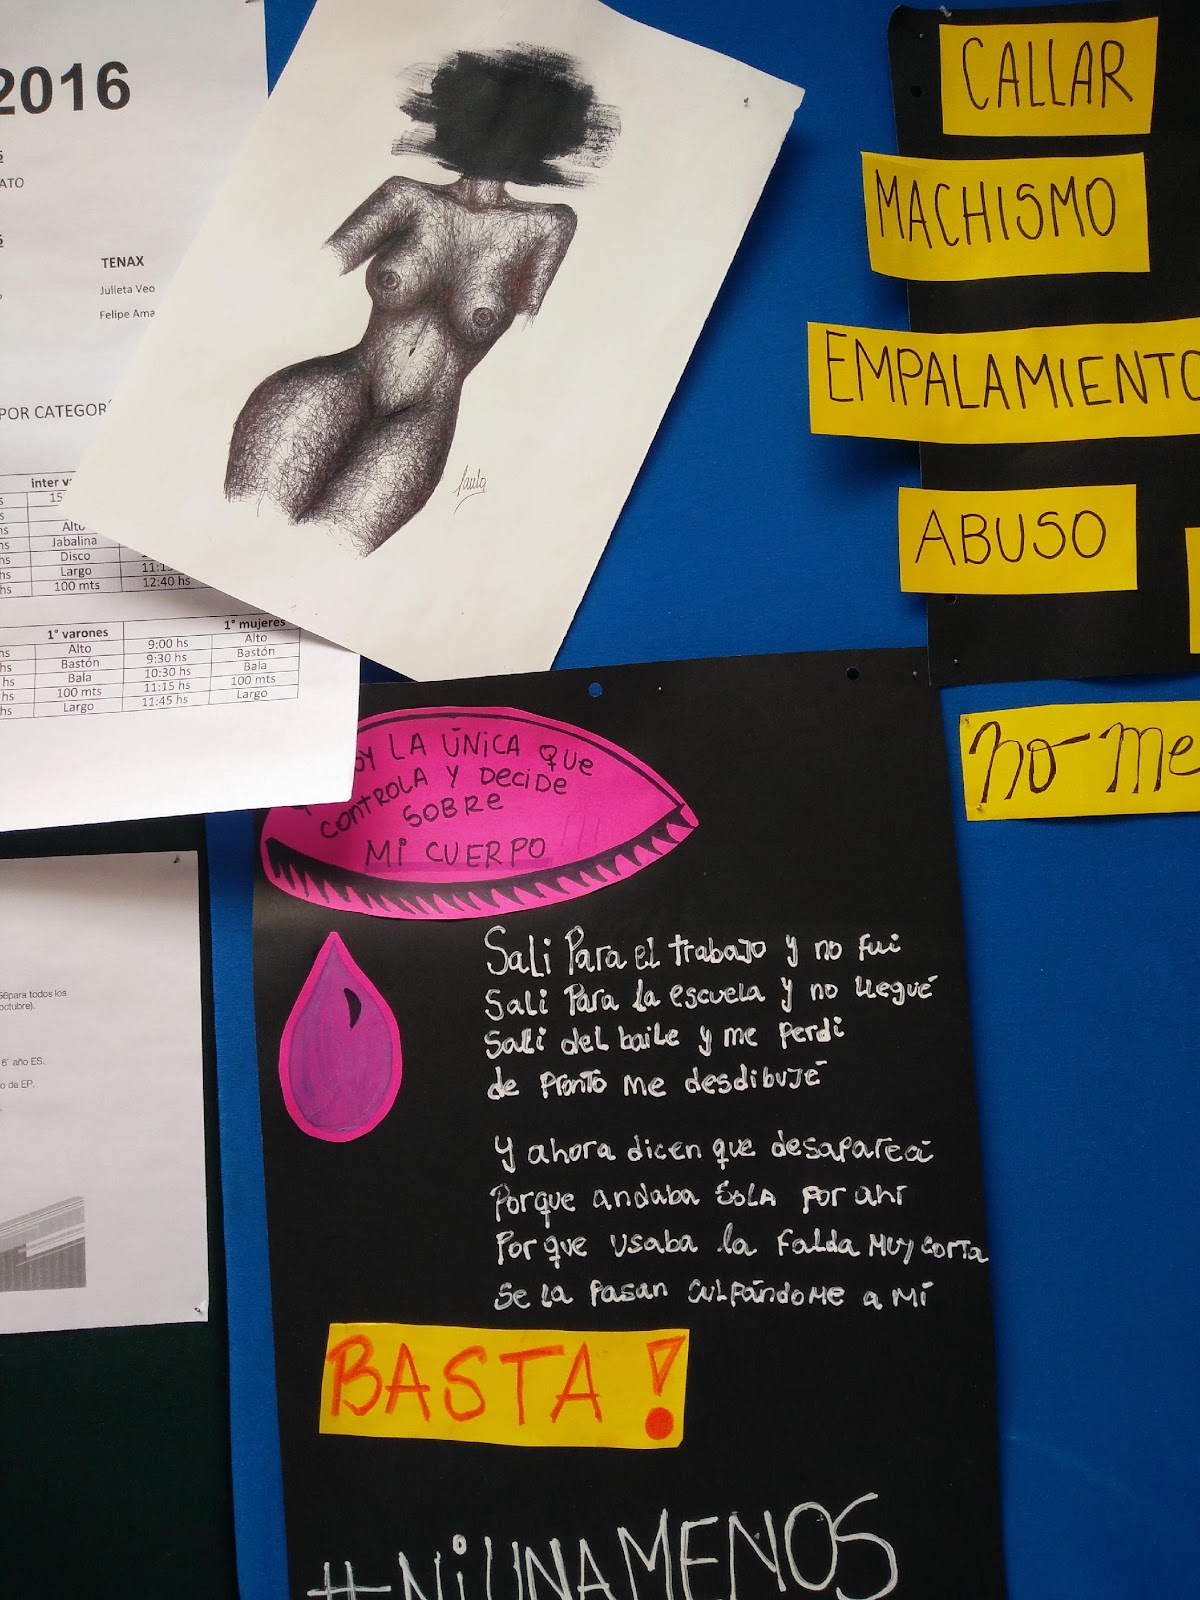 2016
TENAX
Julieta Veo
Felipe Ama
POR CATEGOR
inter v
15
Alto
Jabalina
Disco
Largo
100 mts
12:40 hs
1° varones
1° mujeres
Alto
9:00 hs
Alto
Bastón
9:30 hs
Bastón
Bala
10:30 hs
Bala
100 mts
11:15 hs
100 mts
Largo
11:45 hs
Largo
Paula
CALLAR
MACHISMO
EMPALAMIENTO
ABUSO
No me
oy LA ÚNICA QUE
CONTROLA Y DECIDE
SOBRE
MI CUERPO !!!
Sali Para el trabajo y no fui
Sali Para la escuela y no llegué
Sali del baile y me perdi
de pronto me desdibujé
Y ahora dicen que desapareci
Porque andaba sola por ahí
Porque usaba la falda muy corta
Se la pasan culpándome a mí
BASTA!
#NiUNAMENOS
56para todos los
octubre).
6° año ES.
o de EP.